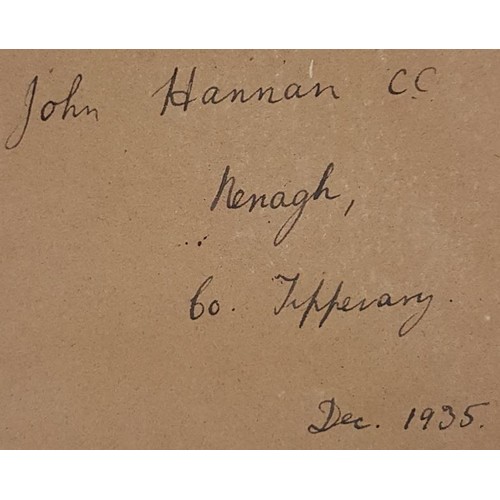 John Hannan CC
Nenagh,
Co. Tipperary.
Dec. 1935.